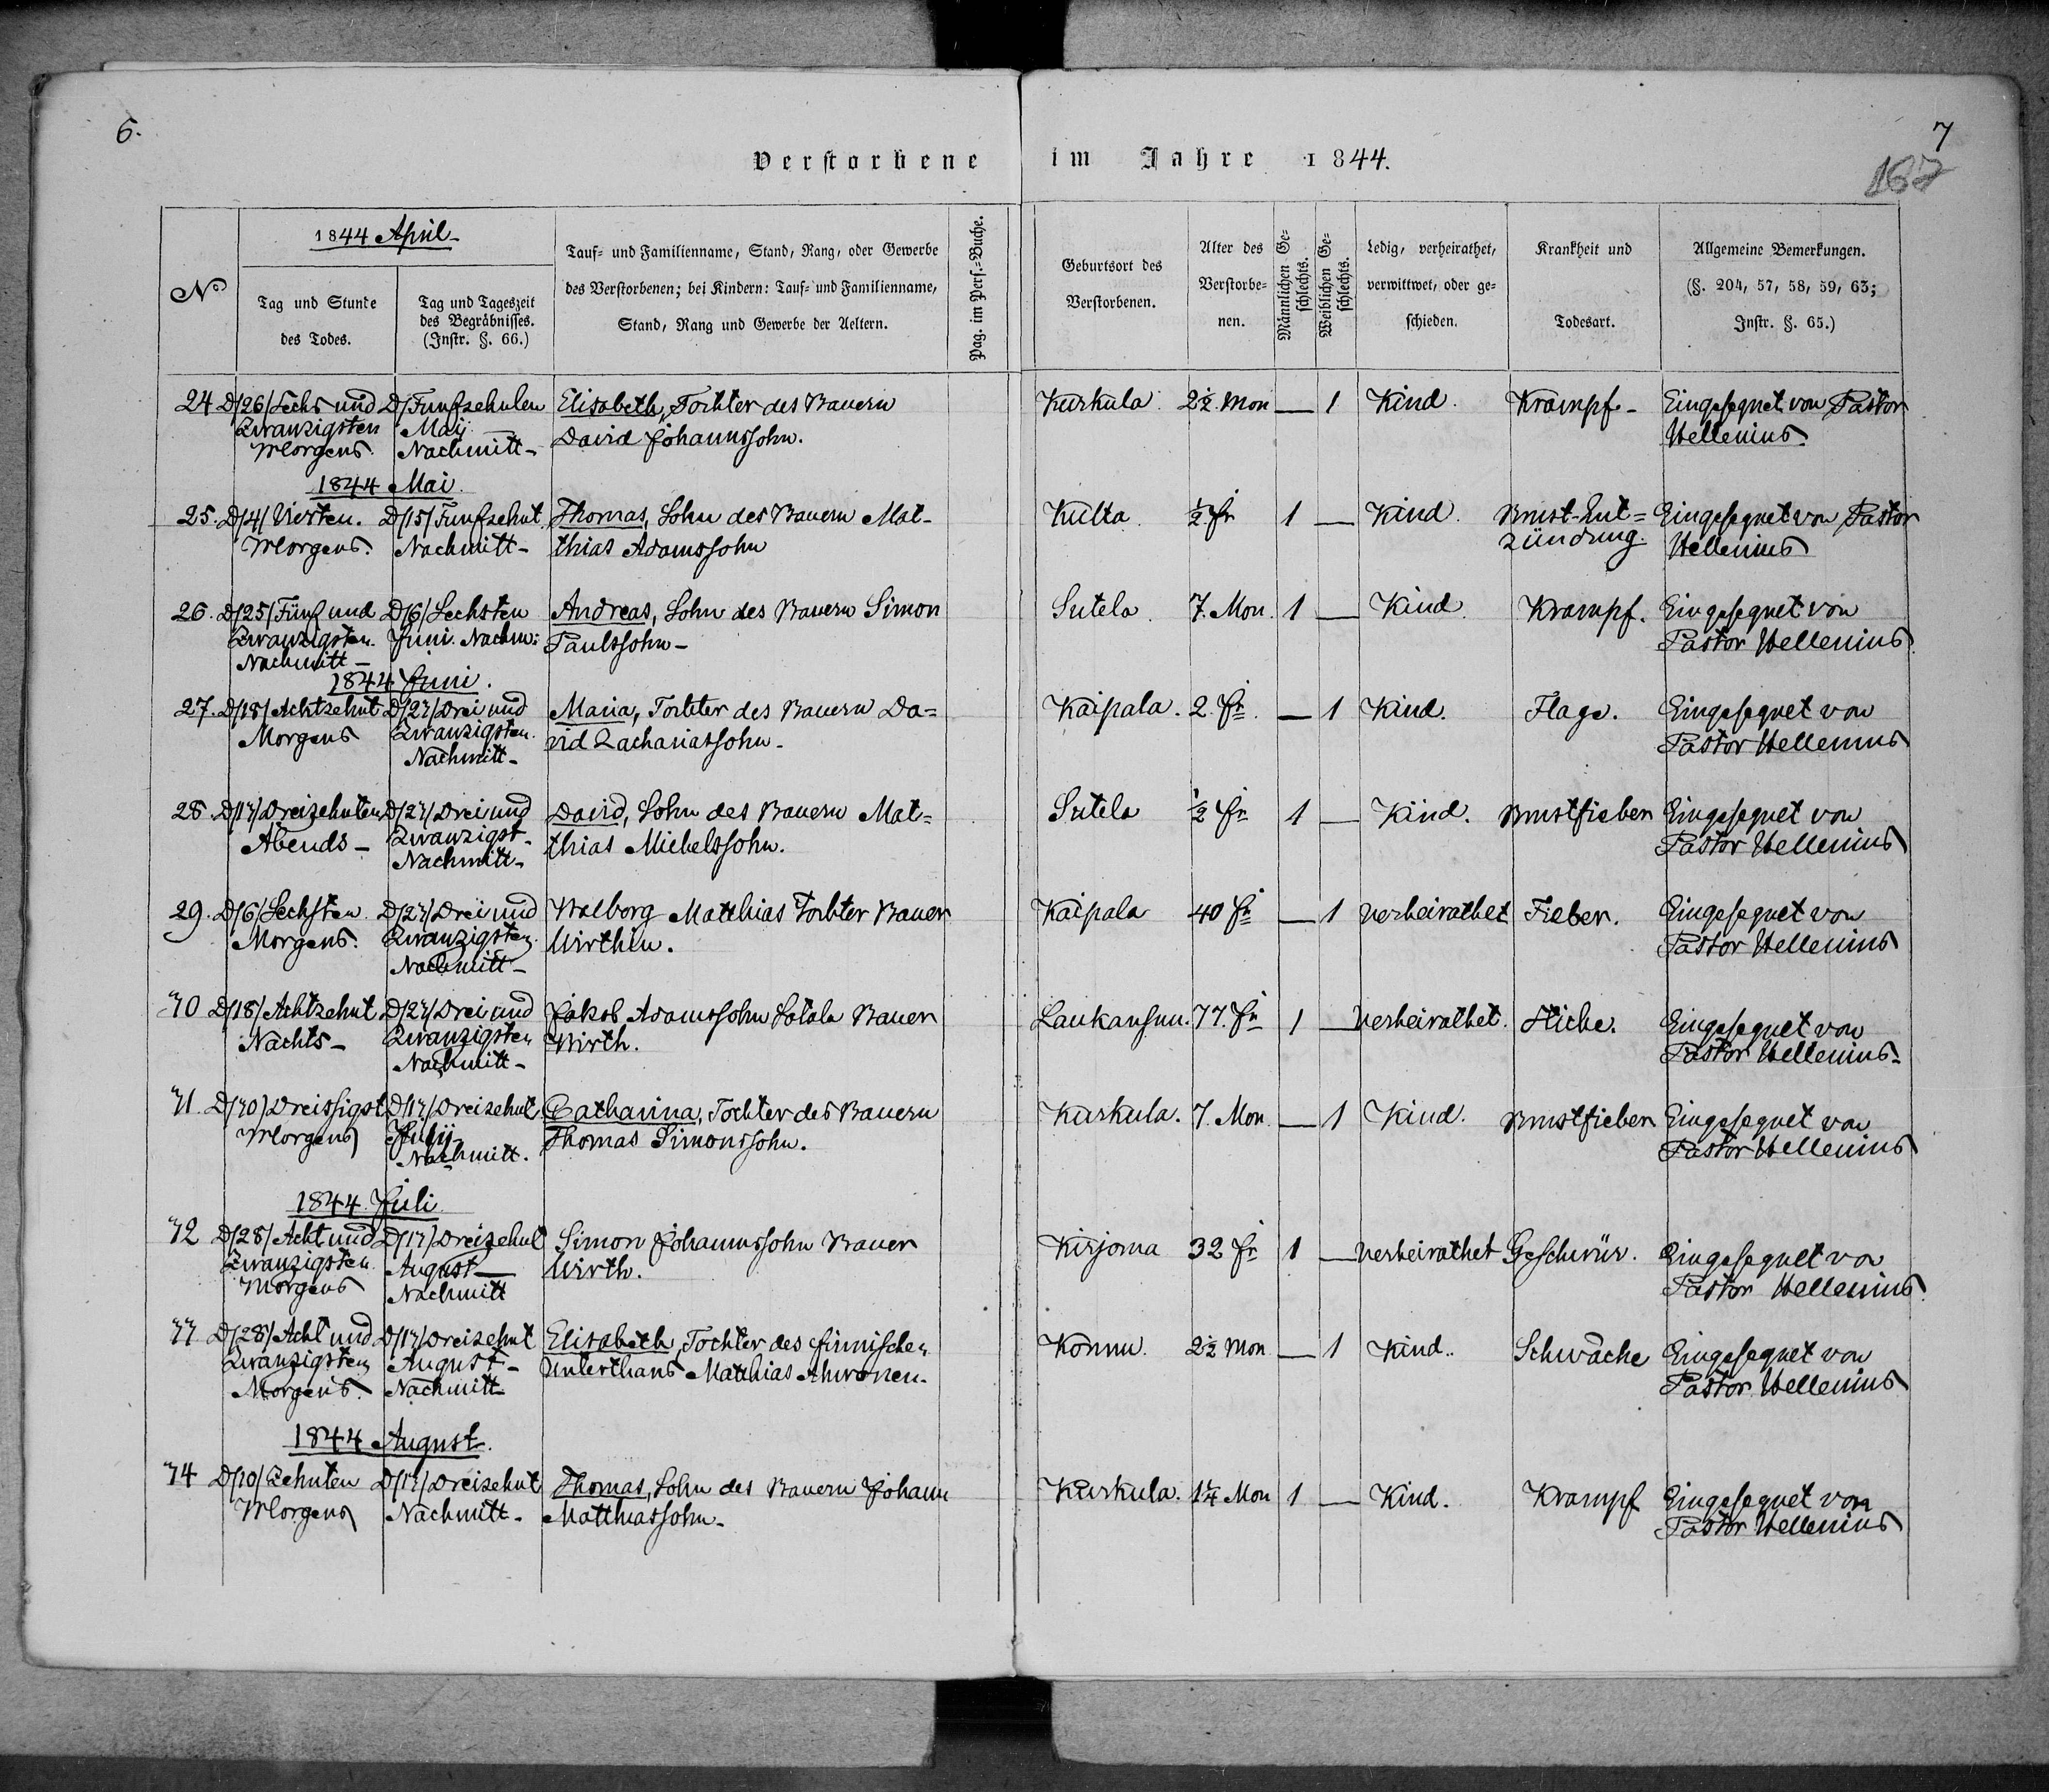 6.
7
187
Verstorbene im Jahre 1844.
No
1844 April
Tag und Stunde
des Todes.
Tag und Tageszeit
des Begräbnisses.
(Instr. §. 66.)
Tauf- und Familienname, Stand, Rang, oder Gewerbe
des Verstorbenen; bei Kindern: Tauf- und Familienname,
Stand, Rang und Gewerbe der Aeltern.
Pag. im Pers.-Buche.
Geburtsort des
Verstorbenen.
Alter des
Verstorbe-
nen.
Männlichen Ge-
schlechts.
Weiblichen Ge-
schlechts.
Ledig, verheirathet,
verwittwet, oder ge-
schieden.
Krankheit und
Todesart.
Allgemeine Bemerkungen.
(§. 204, 57, 58, 59, 63;
Instr. §. 65.)
24 D/26/ Sechs und D/ Funfzehnten Elisabeth, Tochter des Bauern Kurkula. 2½ Mon — 1 Kind. Krampf- Eingesegnet von Pastor
Zwanzigsten Maij David Johannssohn. Hellenius
Morgens. Nachmitt-
1844 Mai.
25. D/4/ Vierten. D/15/ Funfzehnt Thomas, Sohn des Bauern Mat- Kulta. ½ Jr 1 — Kind. Brust-Ent= Eingesegnet von Pastor
Morgens. Nachmitt- thias Adamssohn zündung. Hellenius
26. D/25/ Fünf und D/6/ Sechsten Andreas, Sohn des Bauern Simon Sutela. 7. Mon. 1 — Kind Krampf. Eingesegnet von
Zwanzigsten. Juni. Nachm: Paulssohn- Pastor Hellenius.
Nachmitt-
1844 Juni.
27. D/18/ Achtzehnt D/23/ Drei und Maria, Tochter des Bauern Da= Kaipala. 2. Jr. — 1 Kind. Flage. Eingesegnet von
Morgens Zwanzigsten. vid Zachariassohn- Pastor Hellenius
Nachmitt-
28. D/13/ Dreizehnten D/23/ Drei und David, Sohn des Bauern Mat= Sutela ½ Jr 1 — Kind. Brustfieber Eingesegnet von
Abends- Zwanzigst- thias Michelssohn. Pastor Hellenius
Nachmitt-
29. D/6/ Sechsten D/23/ Drei und Walborg Matthias Tochter Bauer Kaipala 40 Jr — 1 verheirathet Fieber. Eingesegnet von
Morgens. Zwanzigsten. Wirthin. Pastor Hellenius
Nachmitt-
30 D/18/ Achtzehnt D/23/ Drei und Jakob Adamssohn Bauer 73. Jr 1 — verheirathet. Stiche. Eingesegnet von
Nachts- Zwanzigsten Wirth. Pastor Hellenius-
Nachmitt-
31. D/30/ Dreissigst D/13/ Dreizehnt Catharina, Tochter des Bauern Kurkula. 7. Mon — 1 Kind. Brustfieber Eingesegnet von
Morgens Julij Thomas Simonssohn. Pastor Hellenius
Nachmitt.
1844. Juli
32 D/28/ Acht und D/13/ Dreizehnt Simon Johannssohn Bauer Kirjoma 32 Jr 1 — verheirathet Geschwür. Eingesegnet von
Zwanzigsten August- Wirth. Pastor Hellenius.
Morgens Nachmitt
33 D/28/ Acht und D/13/ Dreizehnt Elisabeth, Tochter des finnischen Konnu. 2½ Mon — 1 Kind.. Schwäche Eingesegnet von
Zwanzigsten August- Unterthans Matthias Ahwonen. Pastor Hellenius
Morgens. Nachmitt-
1844 August.
34 D/10/ Zehnten D/13/ Dreizehnt Thomas, Sohn des Bauern Johann Kurkula. 1¼ Mon 1 — Kind. Krampf Eingesegnet von
Morgens Nachmitt- Matthiassohn- Pastor Hellenius